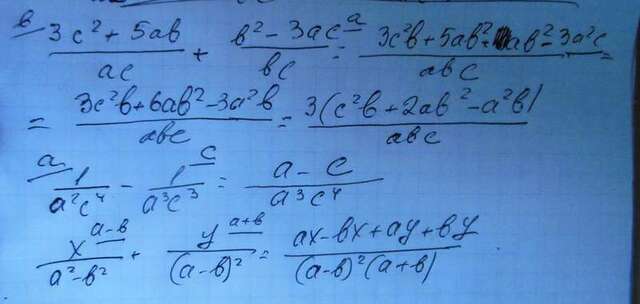 в) (3c² + 5ab)/(ac) + (b² - 3ac)/(bc) ᵃ = (3c²b + 5ab² + ab² - 3a²c)/(abc) =
= (3c²b + 6ab² - 3a²b)/(abc) = 3(c²b + 2ab² - a²b)/(abc)
а) 1/(a²c⁴) - 1/(a³c³) ᶜ = (a - c)/(a³c⁴)
x ᵃ⁻ᵇ/(a² - b²) + y ᵃ⁺ᵇ/(a-b)² = (ax - bx + ay + by)/((a-b)²(a+b))